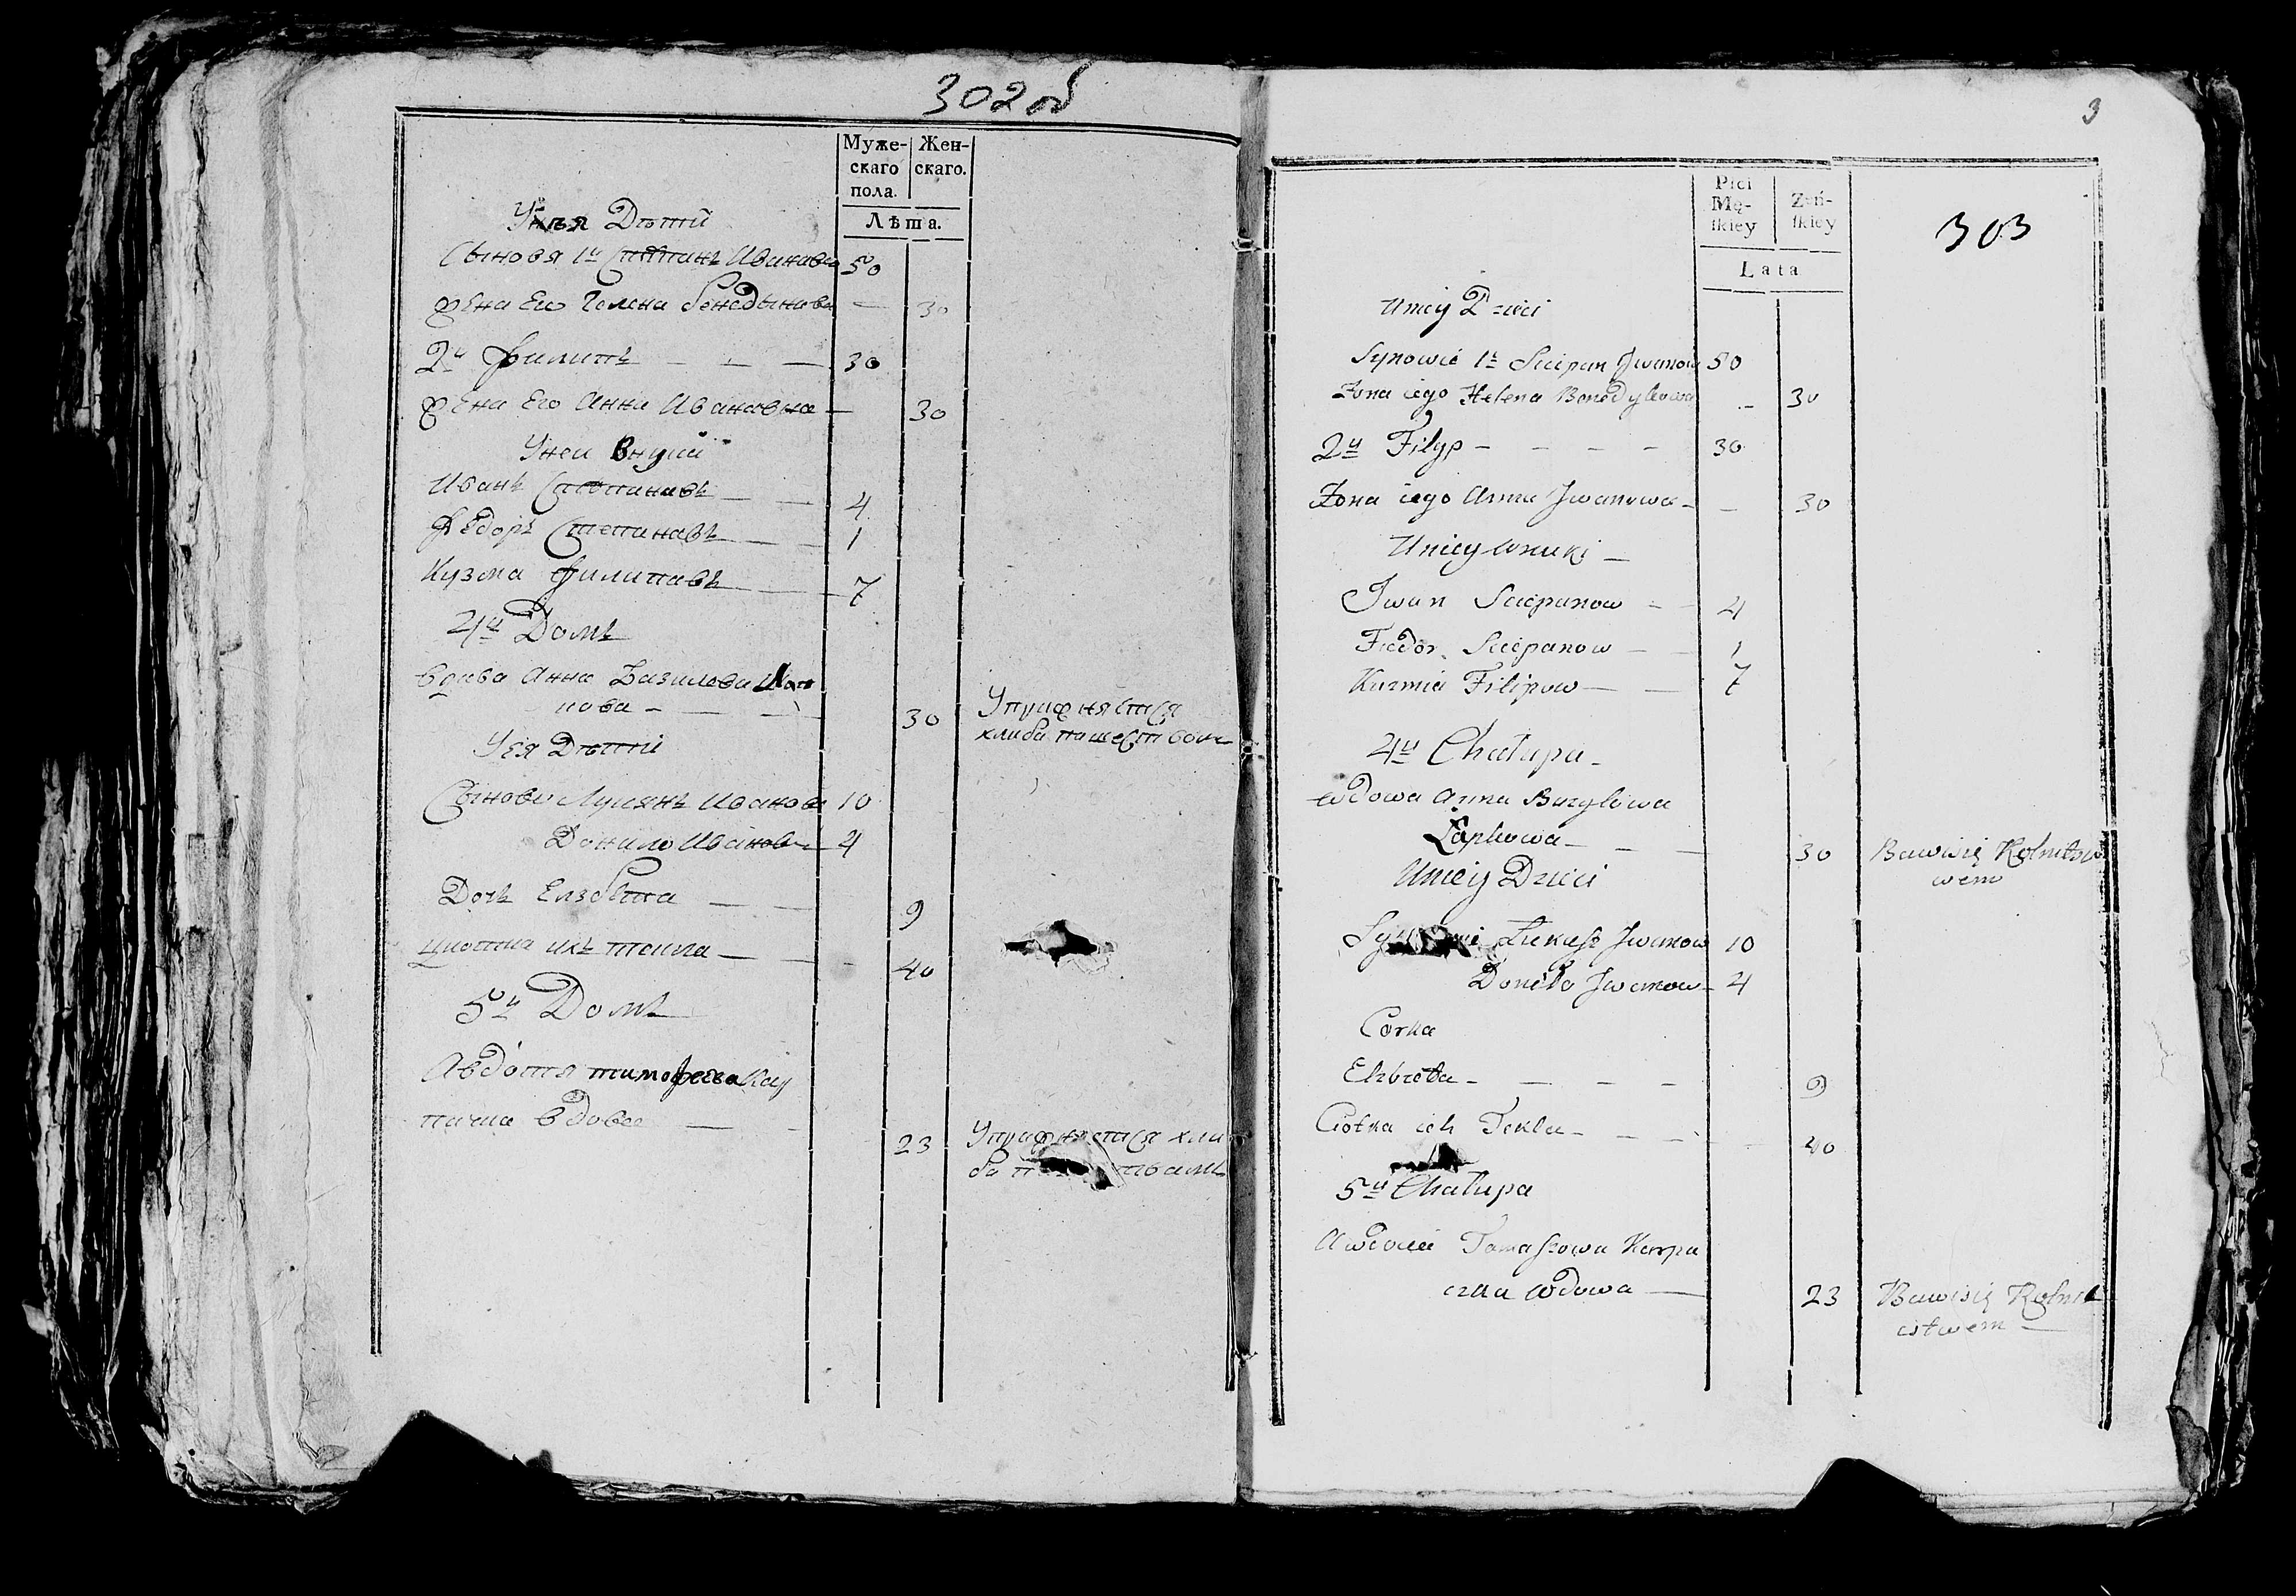 302 об
Муже-
скаго
пола.
Жен-
скаго.
Лѣта.
Унея Дѣтй
Сыновя 1й Степанъ Иванавъ 50
жена Его Гелена Бенедыкова — 30
2й Филипъ — — — 30
жена Его Анна Ивановна — 30
Унеи Внуки
Иванъ Степанавъ — — 4
Федоръ Степанавъ — — 1
Кузма Филипавъ — — 7
4й Домъ
вдава Анна Базилева
пова — — — 30 Упражняется
хлибапашеством
Уея Дѣтй
Сынове Лукянъ Иванов 10
Данило Иванов 4
Дочъ Елзбета — — 9
циотка ихъ текла — — — 40
5й Домъ
Авдотя тимофеева Кар
пачка вдова — — 23 Упражняется хли
ба тваmъ
3
303
Płci
Mę-
ſkiey
Żeń-
ſkiey
Lata
Uniey Dzieci
Synowie 1й Sciepan Jwanow 50
Żona iego Helena Benedykowa — 30
2й Filyp — — — — 30
Żona iego Anna Jwanowa — — 30
Uniey wnuki —
Jwan Sciepanow — — 4
Fiedor Sciepanow — — 1
Kuzmia Filipow — — 7
4й Chałupa —
wdowa Anna Bazylowa
Łapkowa — — — 30 Bawisię Rolnictw
wem
Uniey Dzieci
Łukaſz Jwanow 10
Daniło Jwanow — 4
Corka
Elzbieta — — — — 9
Ciotka ich Tekla — — — — 40
5й Chałupa
Awdocia Tomaſzowa Karpa
czka wdowa — 23 Bawisię Rolni
ctwem —